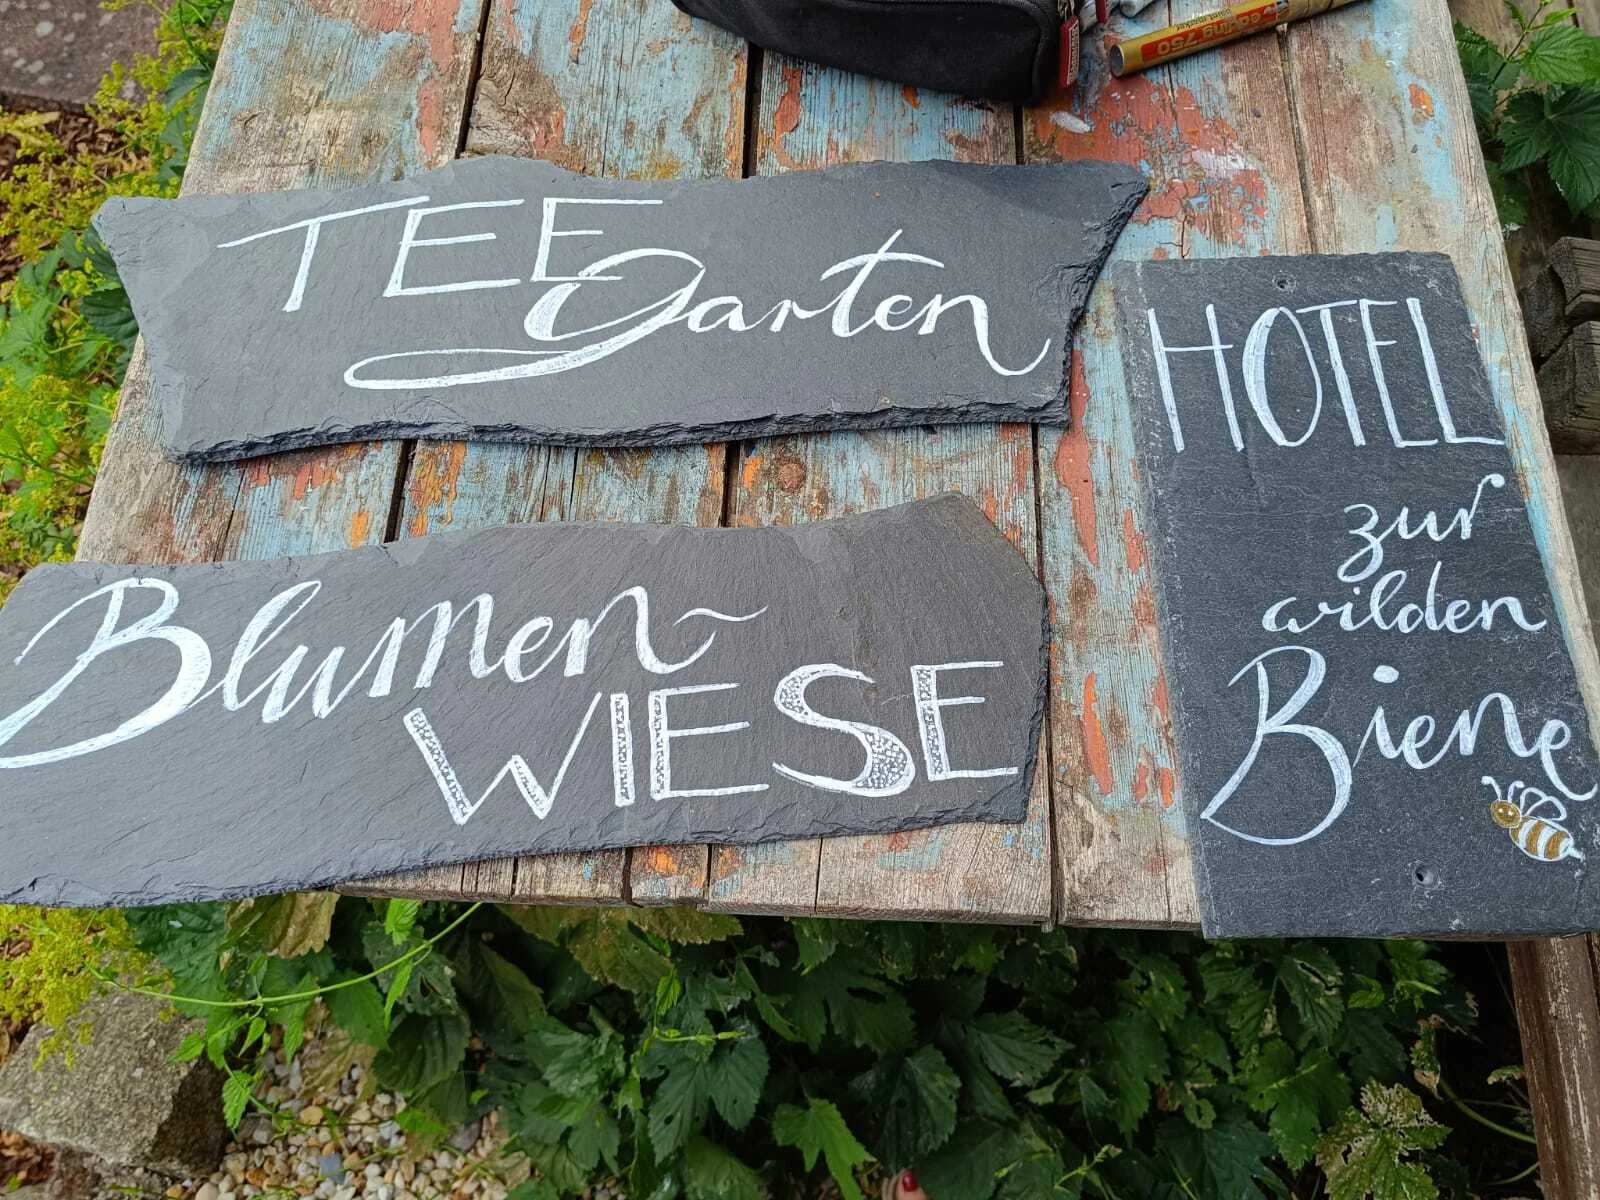 TEE
Garten
Blumen~
WIESE
HOTEL
zur
wilden
Biene
edding 750
paint marker